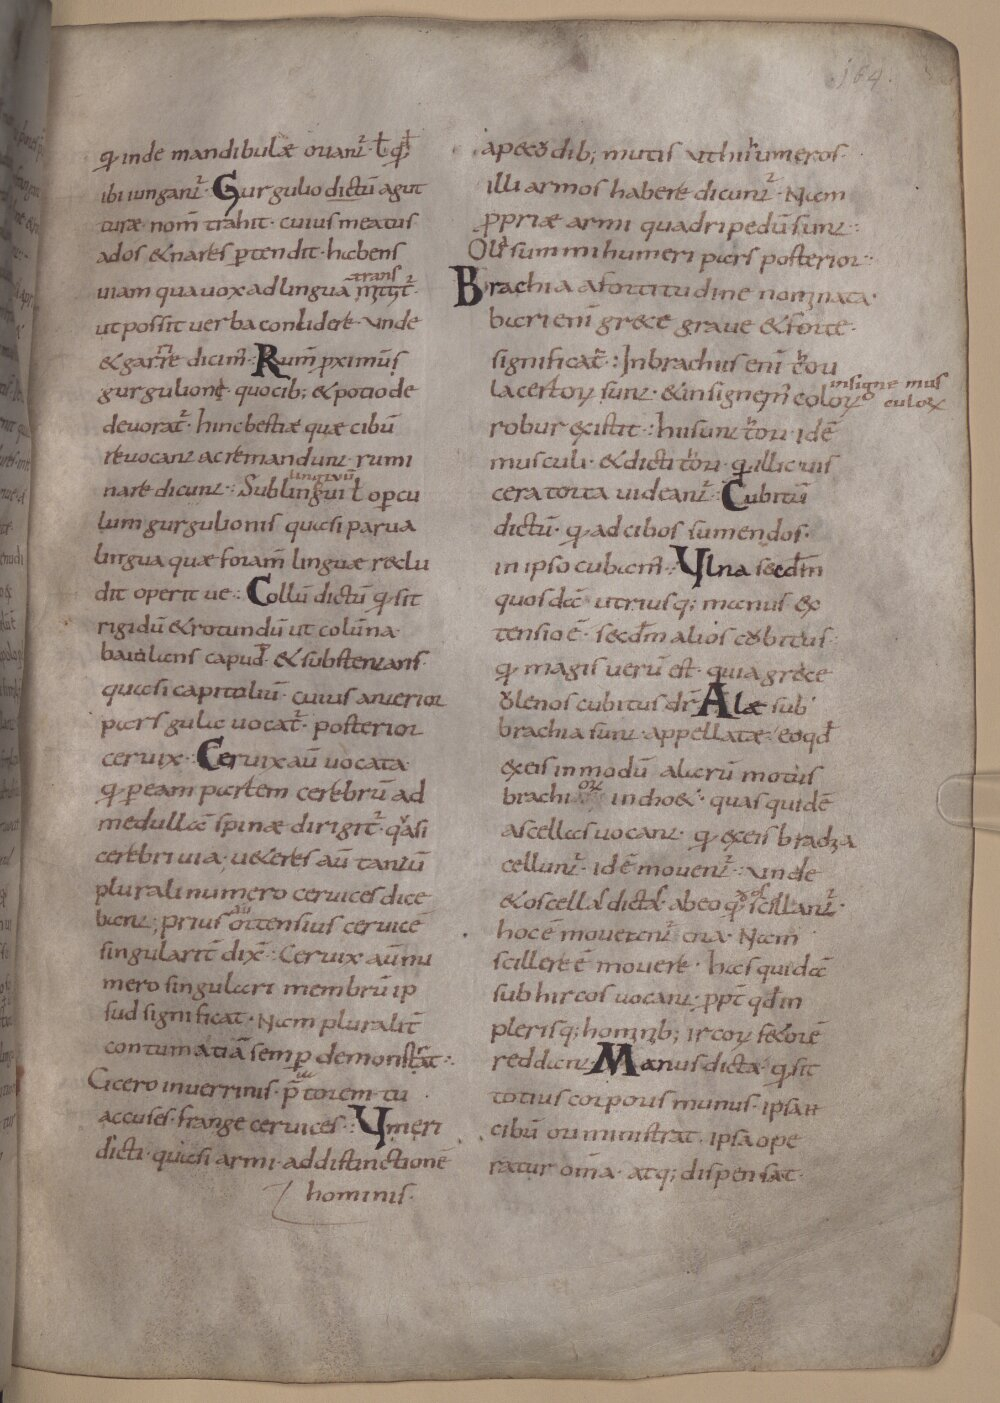 184.
qđ inde mandibulæ oriant᷑· ł qđ
ibi iungant᷑· Gurgulio dictū a gut
turæ nom̄ trahit· cuius meatus
ad os & nares ꝑtendit· habens
uiam qua uox ad lingua trans mittit᷑·
ut possit uerba conlidere· unde
& garrire dicim̄· Rum̄ proximus
gurgulione· quo cib; & potio de
uorat᷑· hinc bestiæ quæ cibū
reuocant ac remandunt rumi
nare dicunt· Sublinguiū ł opercu
lum gurgulionis quasi parua
lingua quæ foram̄ linguæ reclu
dit operit ue· Collū dictū qđ sit
rigidū & rotundū ut colūna
baiolans capud· & substentans·
quasi capitoliū· cuius anterior
pars gula uocat᷑· posterior
ceruix· Ceruix aū uocata
qđ ꝑ eam partem cerebrū ad
medullā spinæ dirigit᷑· quasi
cerebri uia· ueteres aū tantū
plurali numero ceruices dice
bant; prius ortensius ceruicē
singularit̄ dix̄· Ceruix aū nu
mero singulari membrū ip
sud significat· Nam pluralit̄
contumatiā semꝑ demonstrat·
Cicero in uerrinis· p̄torem tu
accuses· frange ceruices· Ymeri
dicti· quasi armi· ad distinctionē
hominis·
a pecodib; mutis ut hii umeros·
illi armos habere dicunt᷑· Nam
ꝓpriæ armi quadripedū sunt·
Ol summi humeri pars posterior·
Brachia a fortitudine nominata·
bari enī grece graue & forte·
significat᷑· In brachiis enī tori
lacertorū sunt· & insigne musculorū
robur existit· hii sunt tori· idē
musculi· & dicti tori· qđ illic uis
cera torta uideant᷑· Cubitū
dictū· qđ ad cibos sumendos·
in ipso cubam̄· Ylna secdm̄
quosdā utriusq; manus ex
tensio ē· secdm̄ alios cobitus·
qđ magis uerū est· quia grece
olenos cubitus dr̄· Alæ sub
brachia sunt appellatæ· eo qđ
ex eis in modū alarū motus
brachiorū inchoet· quas quidē
ascellas uocant· qđ ex eis brachia
cellunt᷑· idē mouent᷑· unde
& oscella dicta· ab eo qđ os cillant᷑·
hoc ē mouetent᷑ ora· Nam
scillere ē mouere· has quidā
sub hircos uocant· ppt̄ qđ in
plerisq; hominib; ircorū fetorē
reddant· Manus dicta· qđ sit
totius corporis munus· ipsa n
cibū ori ministrat· ipsa ope
ratur oīna· atq; dispensat·